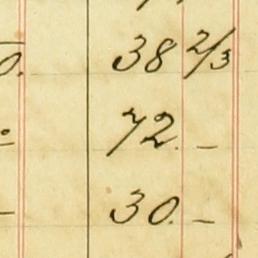 0. 38 2/3
72. –
30. –